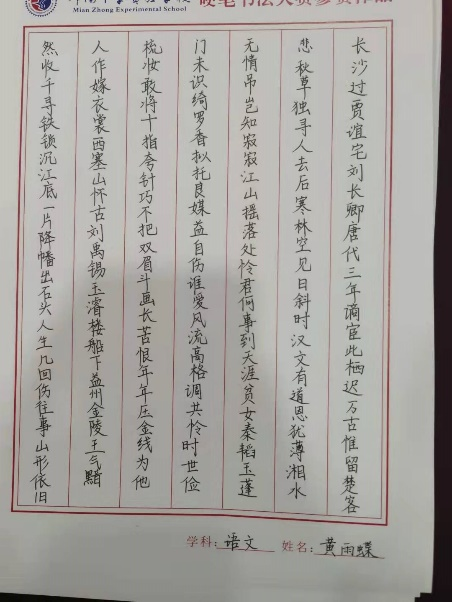 Mian Zhong Experimental School
硬笔书法大赛参赛作品
长沙过贾谊宅刘长卿唐代三年谪宦此栖迟万古惟留楚客
悲秋草独寻人去后寒林空见日斜时汉文有道恩犹薄湘水
无情吊岂知寂寂江山摇落处怜君何事到天涯贫女秦韬玉蓬
门未识绮罗香拟托良媒益自伤谁爱风流高格调共怜时世俭
梳妆敢将十指夸针巧不把双眉斗画长苦恨年年压金线为他
人作嫁衣裳西塞山怀古刘禹锡玉濬楼船下益州金陵王气黯
然收千寻铁锁沉江底一片降幡出石头人生几回伤往事山形依旧
学科：语文 姓名：黄雨蝶